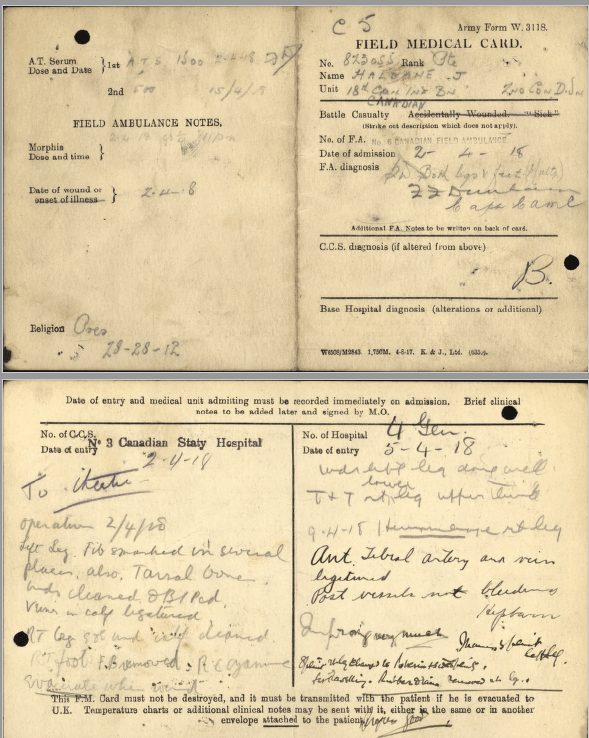 C 5
Army Form W. 3118.
FIELD MEDICAL CARD.
A.T. Serum
Dose and Date
1st A.T.S. 1500 2-4-18
2nd 500 15/4/18
FIELD AMBULANCE NOTES.
Morphia
Dose and time
Date of wound or
onset of illness
2-4-18
Religion Pres
28-28-12
No. 823055 Rank Pte
Name HALDANE. J
Unit 18th CAN INF BN 2ND CAN DIVN
CANADIAN
Battle Casualty Accidentally Wounded. "Sick"
(Strike out description which does not apply).
No. of F.A. No 6 CANADIAN FIELD AMBULANCE
Date of admission 2- 4- 18
F.A. diagnosis Both legs & feet
Capt CAMC
Additional F.A. Notes to be written on back of card.
C.C.S. diagnosis (if altered from above)
B.
Base Hospital diagnosis (alterations or additional)
W4508/M2843 1,750M. 4-5-17. K. & J., Ltd.
Date of entry and medical unit admitting must be recorded immediately on admission. Brief clinical
notes to be added later and signed by M.O.
No. of C.C.S. No 3 Canadian Staty Hospital
Date of entry 2-4-18
To theatre
operation 2/4/18
Left Leg. Tib smashed in several
places, also Tarsal bones.
wds cleaned &
Veins in calf ligatured
RT leg wd in calf cleaned.
RT foot F.B. removed.
Evacuate when
No. of Hospital 4 Gen.
Date of entry 5-4-18
leg doing well
T & T rt leg upper third
lower
9-4-18 Haemorrhage rt leg
Ant. Tibial artery and vein
ligatured
Post vessels not bleeding
Hepburn
Improving very much
This F.M. Card must not be destroyed, and it must be transmitted with the patient if he is evacuated to
U.K. Temperature charts or additional clinical notes may be sent with it, either in the same or in another
envelope attached to the patient.
Progress good